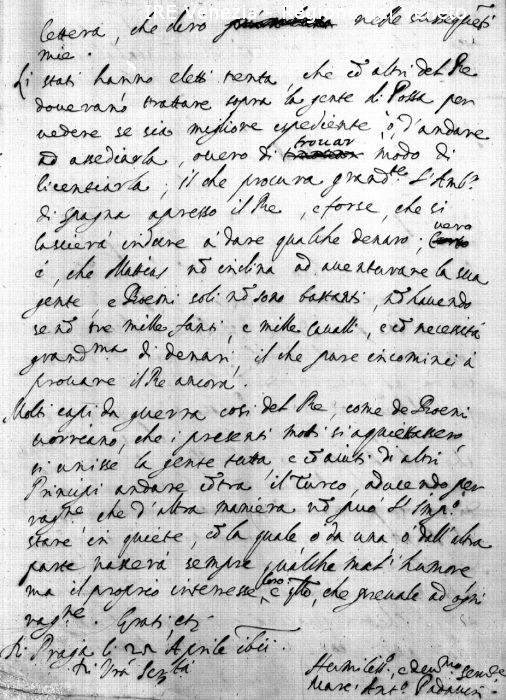 IRE Venezia - Regione del Veneto
lettera, che dirò nelle susseguẽti
mie.
Li stati hanno eletti trenta, che cõ altri del Re
doveranò trattare sopra la gente di Possa per
vedere se sia migliore espediente, ò d'andare
ad assediarla, overo di trovar modo di
licentiarla; il che procura grand.te l'Amb.r
di Spagna apresso il Re, e forse, che si
lascierà indure à dare qualche denaro; vero
è, che Mattias nõ inclina ad aventurare la sua
gente, e Boemi soli nõ sono bastanti, nõ havendo
se nõ tre mille fanti, e mille cavalli, e cõ necessità
grand.ma di denari, il che pure incominci à
provare il Re ancora.
Molti capi da guerra così del Re, come de Boemi
vorriano, che i presenti moti si aquietassero
si unisse la gente tutta, e cõ aiuti di altri
Principi andare cõtra il Turco, aducendo per
rag.ne che d'altra maniera nõ può l'Imp.o
stare in quiete, cõ la quale ò da una ò dall'altra
parte nascerà sempre qualche mal humore
ma il proprio interesse loro è q̃llo, che prevale ad ogni
rag.ne. Grati, etc.
Di Praga li 25 Aprile
Di V̄rā Ser.tà
Humiliss.o, e devd.mo serv.re
Marc'Ant.o Padavin